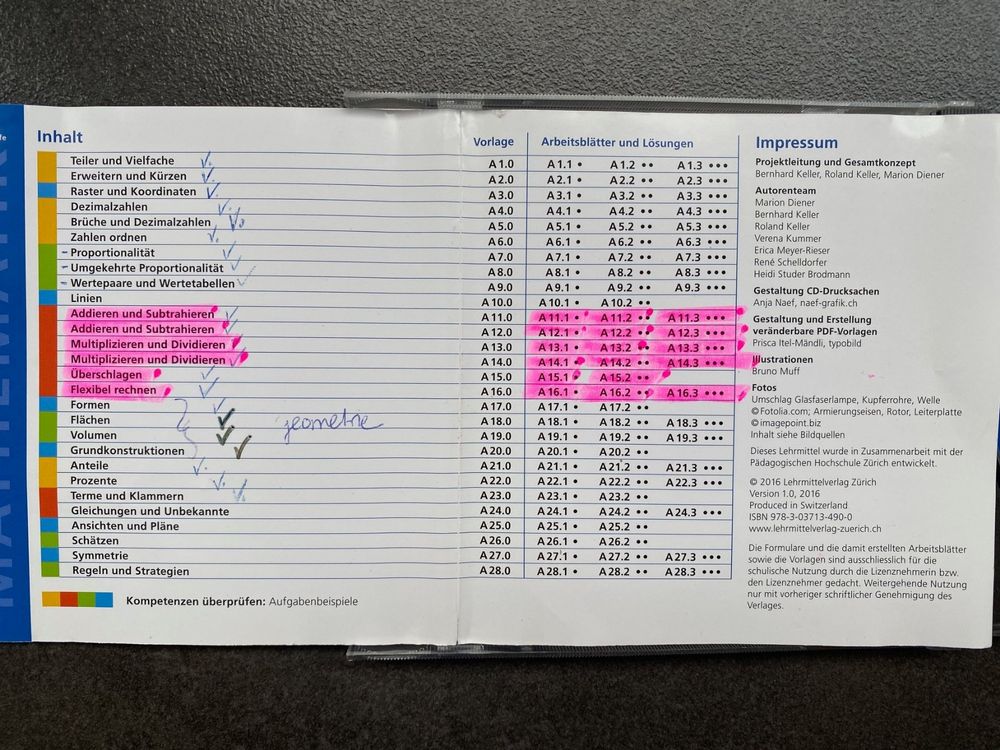 Inhalt Vorlage Arbeitsblätter und Lösungen
Teiler und Vielfache A 1.0 A 1.1 • A 1.2 •• A 1.3 •••
Erweitern und Kürzen A 2.0 A 2.1 • A 2.2 •• A 2.3 •••
Raster und Koordinaten A 3.0 A 3.1 • A 3.2 •• A 3.3 •••
Dezimalzahlen A 4.0 A 4.1 • A 4.2 •• A 4.3 •••
Brüche und Dezimalzahlen A 5.0 A 5.1 • A 5.2 •• A 5.3 •••
Zahlen ordnen A 6.0 A 6.1 • A 6.2 •• A 6.3 •••
– Proportionalität A 7.0 A 7.1 • A 7.2 •• A 7.3 •••
– Umgekehrte Proportionalität A 8.0 A 8.1 • A 8.2 •• A 8.3 •••
– Wertepaare und Wertetabellen A 9.0 A 9.1 • A 9.2 •• A 9.3 •••
Linien A 10.0 A 10.1 • A 10.2 ••
Addieren und Subtrahieren A 11.0 A 11.1 • A 11.2 •• A 11.3 •••
Addieren und Subtrahieren A 12.0 A 12.1 • A 12.2 •• A 12.3 •••
Multiplizieren und Dividieren A 13.0 A 13.1 • A 13.2 •• A 13.3 •••
Multiplizieren und Dividieren A 14.0 A 14.1 • A 14.2 •• A 14.3 •••
Überschlagen A 15.0 A 15.1 • A 15.2 ••
Flexibel rechnen A 16.0 A 16.1 • A 16.2 •• A 16.3 •••
Formen A 17.0 A 17.1 • A 17.2 ••
Flächen A 18.0 A 18.1 • A 18.2 •• A 18.3 •••
Volumen A 19.0 A 19.1 • A 19.2 •• A 19.3 •••
Grundkonstruktionen A 20.0 A 20.1 • A 20.2 ••
Anteile A 21.0 A 21.1 • A 21.2 •• A 21.3 •••
Prozente A 22.0 A 22.1 • A 22.2 •• A 22.3 •••
Terme und Klammern A 23.0 A 23.1 • A 23.2 ••
Gleichungen und Unbekannte A 24.0 A 24.1 • A 24.2 •• A 24.3 •••
Ansichten und Pläne A 25.0 A 25.1 • A 25.2 ••
Schätzen A 26.0 A 26.1 • A 26.2 ••
Symmetrie A 27.0 A 27.1 • A 27.2 •• A 27.3 •••
Regeln und Strategien A 28.0 A 28.1 • A 28.2 •• A 28.3 •••
geometrie
Kompetenzen überprüfen: Aufgabenbeispiele
Impressum
Projektleitung und Gesamtkonzept
Bernhard Keller, Roland Keller, Marion Diener
Autorenteam
Marion Diener
Bernhard Keller
Roland Keller
Verena Kummer
Erica Meyer-Rieser
René Schelldorfer
Heidi Studer Brodmann
Gestaltung CD-Drucksachen
Anja Naef, naef-grafik.ch
Gestaltung und Erstellung
veränderbare PDF-Vorlagen
Prisca Itel-Mändli, typobild
Illustrationen
Bruno Muff
Fotos
Umschlag Glasfaserlampe, Kupferrohre, Welle
©Fotolia.com; Armierungseisen, Rotor, Leiterplatte
©imagepoint.biz
Inhalt siehe Bildquellen
Dieses Lehrmittel wurde in Zusammenarbeit mit der
Pädagogischen Hochschule Zürich entwickelt.
© 2016 Lehrmittelverlag Zürich
Version 1.0, 2016
Produced in Switzerland
ISBN 978-3-03713-490-0
www.lehrmittelverlag-zuerich.ch
Die Formulare und die damit erstellten Arbeitsblätter
sowie die Vorlagen sind ausschliesslich für die
schulische Nutzung durch die Lizenznehmerin bzw.
den Lizenznehmer gedacht. Weitergehende Nutzung
nur mit vorheriger schriftlicher Genehmigung des
Verlages.